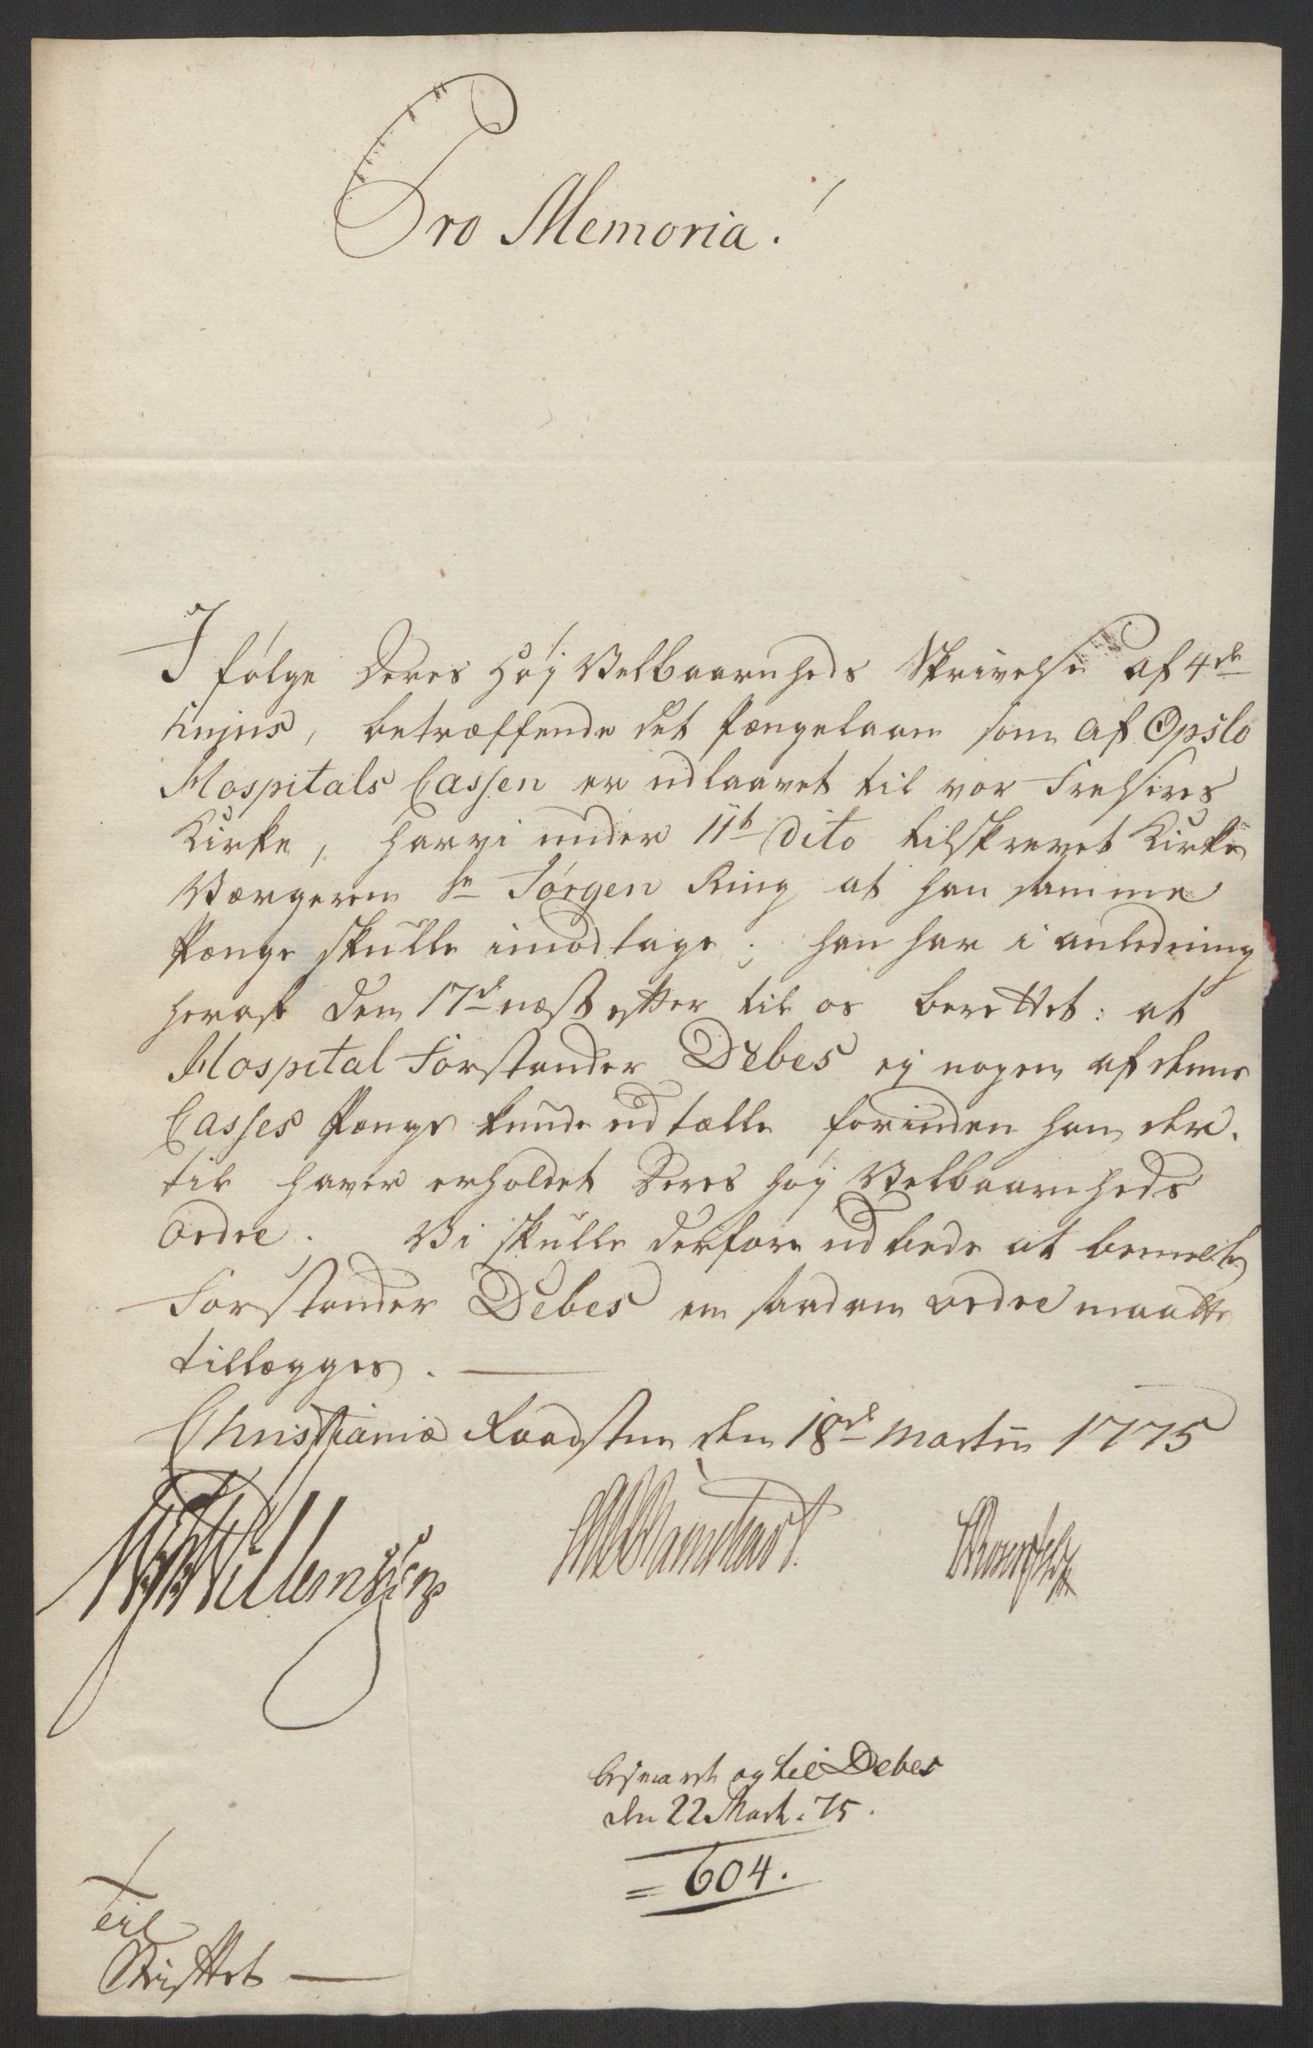 Pro Memoria!
I følge Deres Høy Velbaarnheds Skrivelse af 4de
hujus, betræffende det Pængelaan som af Opslo
Hospitals Cassen er udlaavet til vor Frelseres
Kirke, har vi under 11te dito tilskrevet Kirke
Værgeren Sr Jørgen Ring at han samme
Pænge skulle imodtage; han har i anledning
heraf den 17de næst efter til os berettet: at
Hospital Forstander Debes ey nogen af denne
Casses Penge kunde udtælle forinden han der-
til haver erholdet Deres høy Velbaarnheds
Ordre. Vi skulle derfore udbede at bemelte
Forstander Debes en saadan ordre maatte
tillægges.
Christiania Raadstue den 18de Martii 1775
Willemsen
besvaret og til Debes
den 22 Mart. 75.
604.
Til
Stiftet